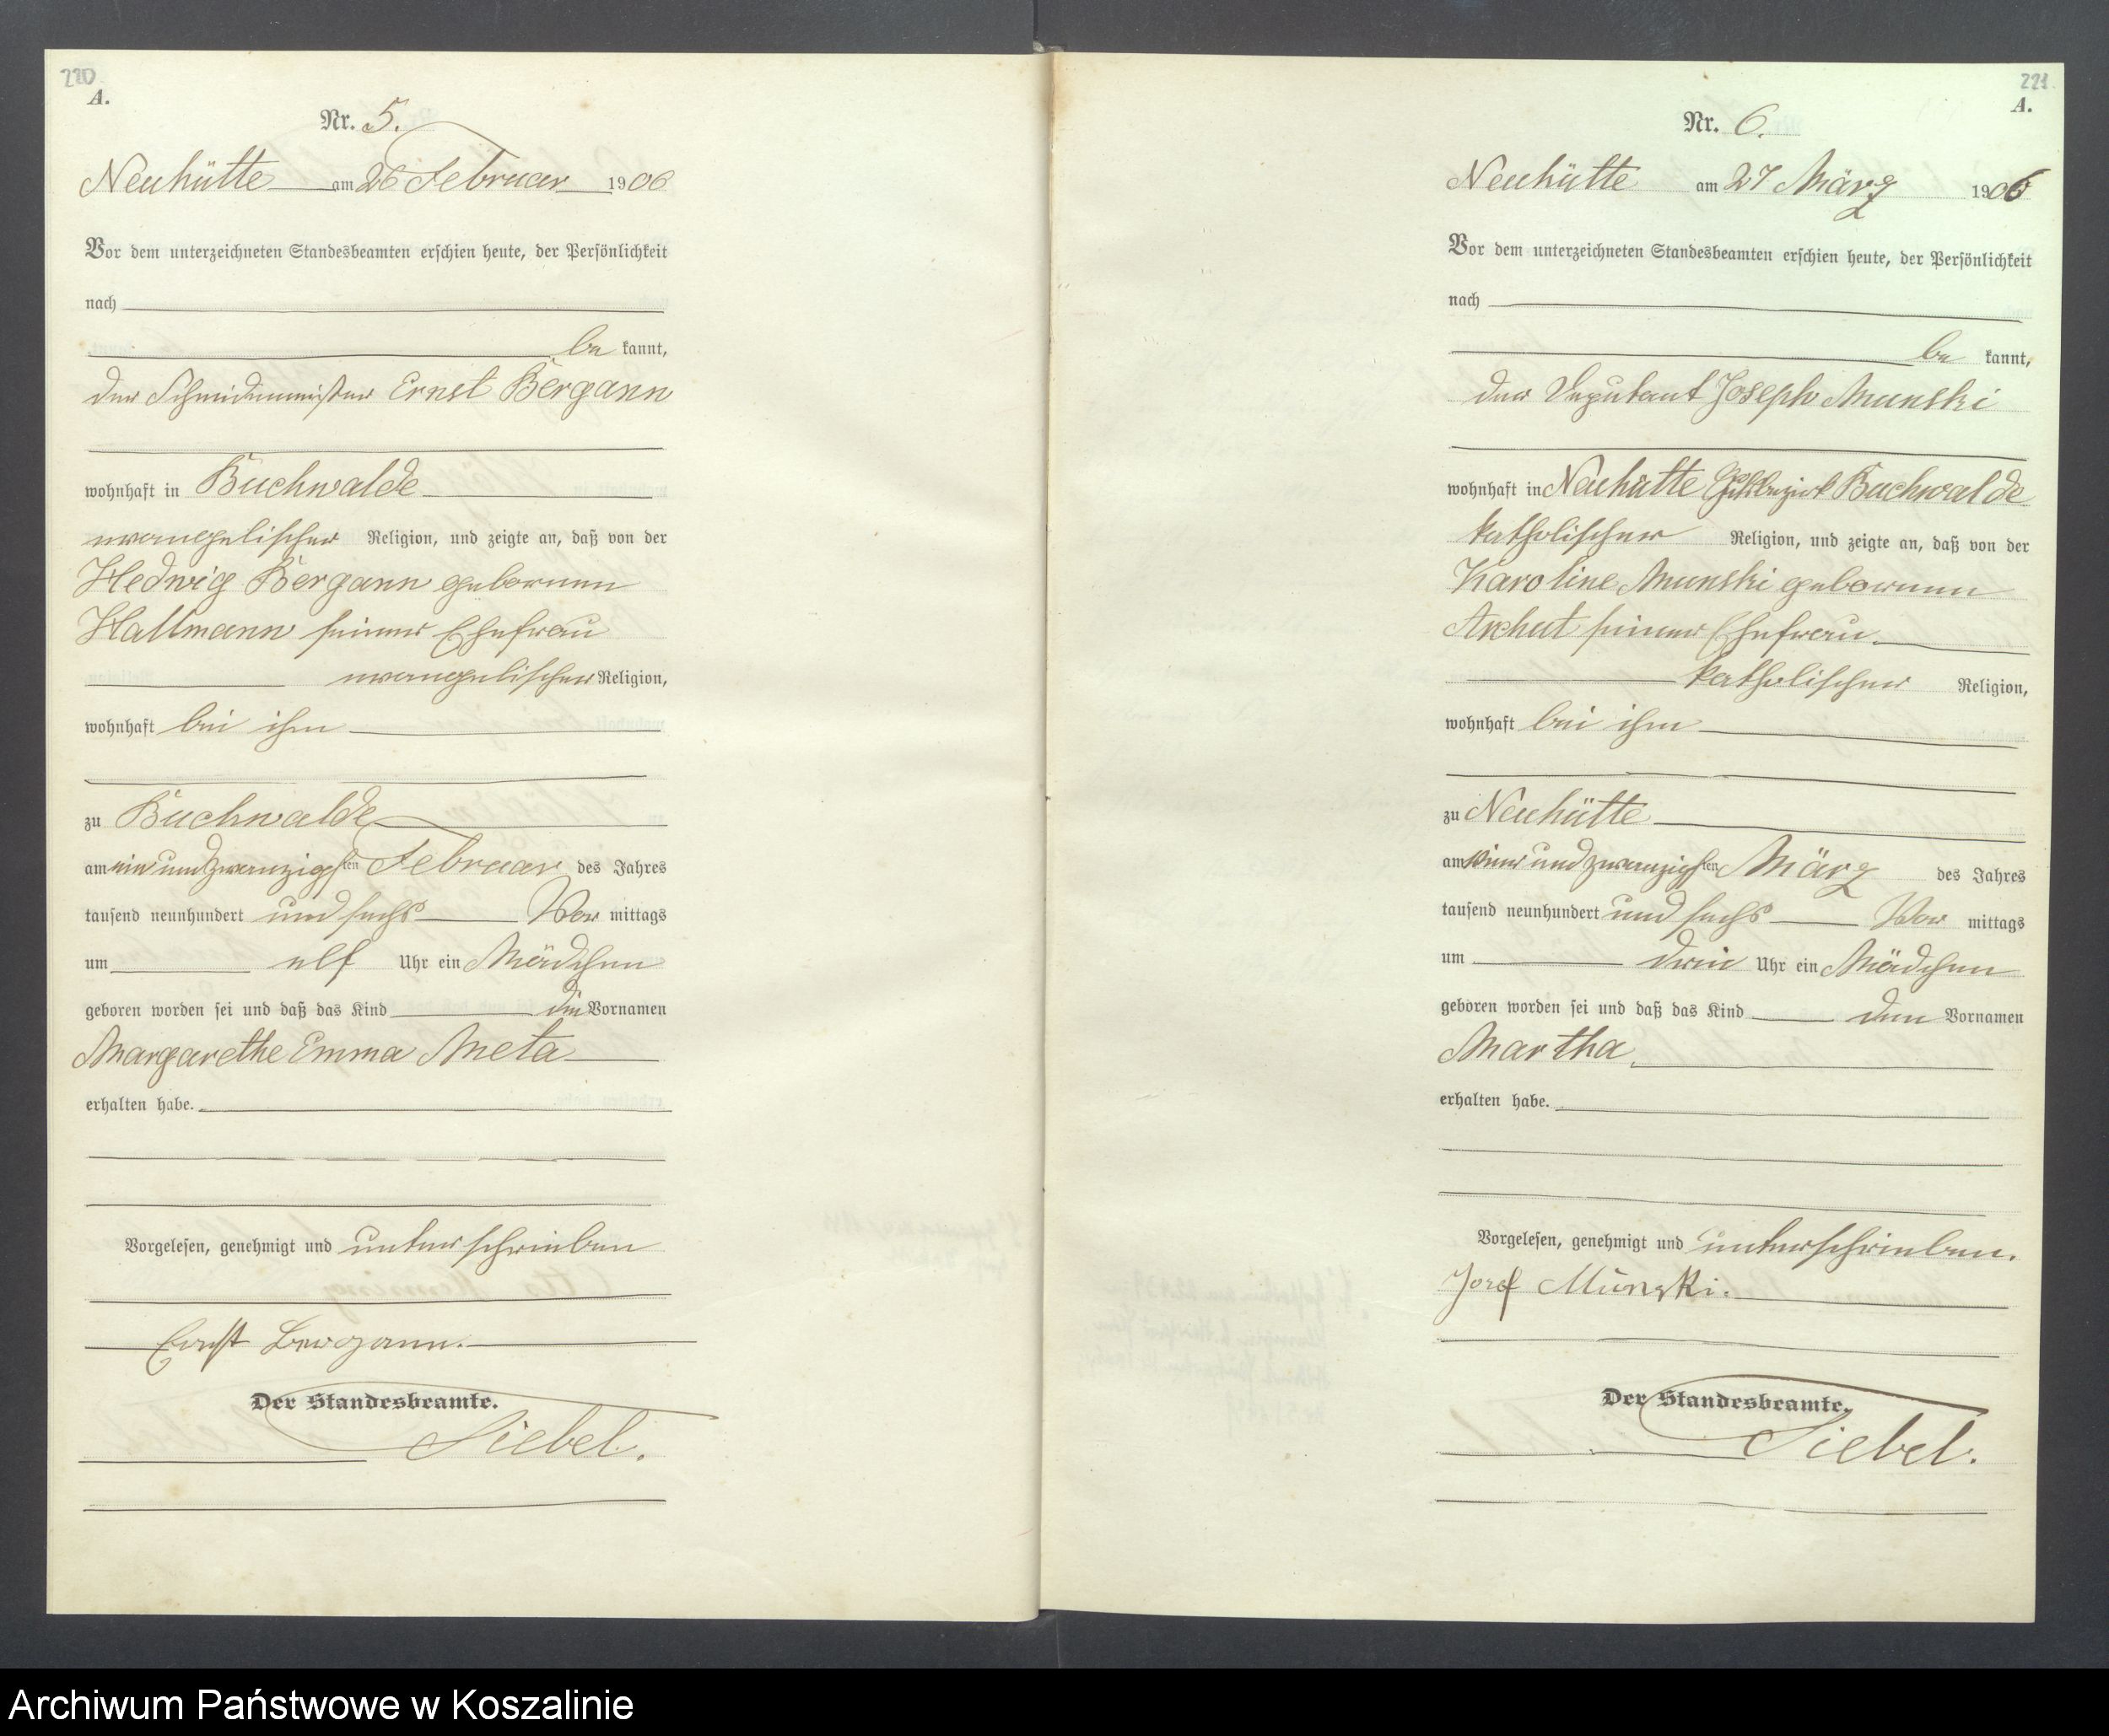 220
A.
Nr. 5.
Neuhütte am 26 Februar 1906
Vor dem unterzeichneten Standesbeamten erschien heute, der Persönlichkeit
nach
be kannt,
der Schmiedemeister Ernst Bergann
wohnhaft in Buchwalde
evangelischer Religion, und zeigte an, daß von der
Hedwig Bergann geborenen
Hallmann seiner Ehefrau
evangelischer Religion,
wohnhaft bei ihm
zu Buchwalde
am ein und zwanzigsten Februar des Jahres
tausend neunhundert und sechs Vor mittags
um elf Uhr ein Mädchen
geboren worden sei und daß das Kind die Vornamen
Margarethe Emma Meta
erhalten habe.
Vorgelesen, genehmigt und unterschrieben
Ernst Bergann.
Der Standesbeamte.
Siebel.
221
A.
Nr. 6.
Neuhütte am 27 März 1906
Vor dem unterzeichneten Standesbeamten erschien heute, der Persönlichkeit
nach
be kannt,
der Deputant Joseph Munski
wohnhaft in Neuhütte Gutsbezirk Buchwalde
katholischer Religion, und zeigte an, daß von der
Karoline Munski geborenen
seiner Ehefrau
katholischer Religion,
wohnhaft bei ihm
zu Neuhütte
am und zwanzigsten März des Jahres
tausend neunhundert und sechs Vor mittags
um drei Uhr ein Mädchen
geboren worden sei und daß das Kind den Vornamen
Martha
erhalten habe.
Vorgelesen, genehmigt und unterschrieben.
Josef Munski.
Der Standesbeamte.
Siebel.
Archiwum Państwowe w Koszalinie